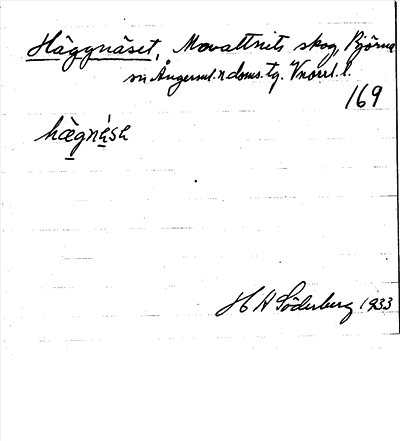 Häggnäset, Movattnets skog, Björna
sn Ångerml. n. doms. tg. Vnorrl. l.
169
hægnése
H A Söderberg 1933